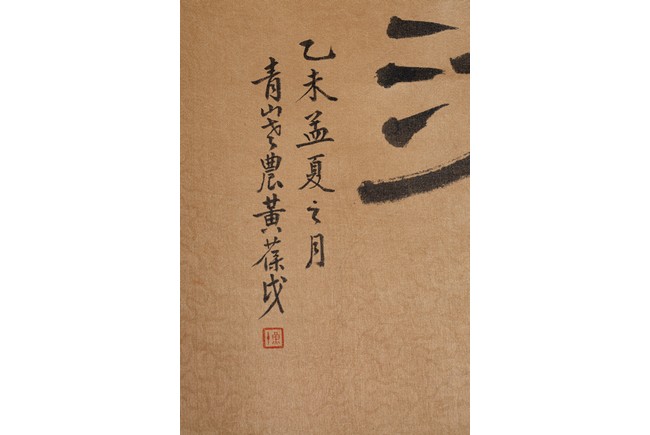 乙未孟夏之月
青山老農黃葆戉